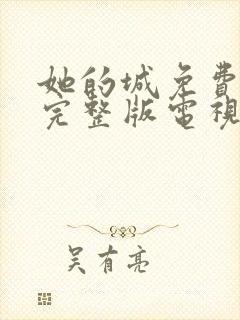 她的城免費
完整版電視
吴有亮